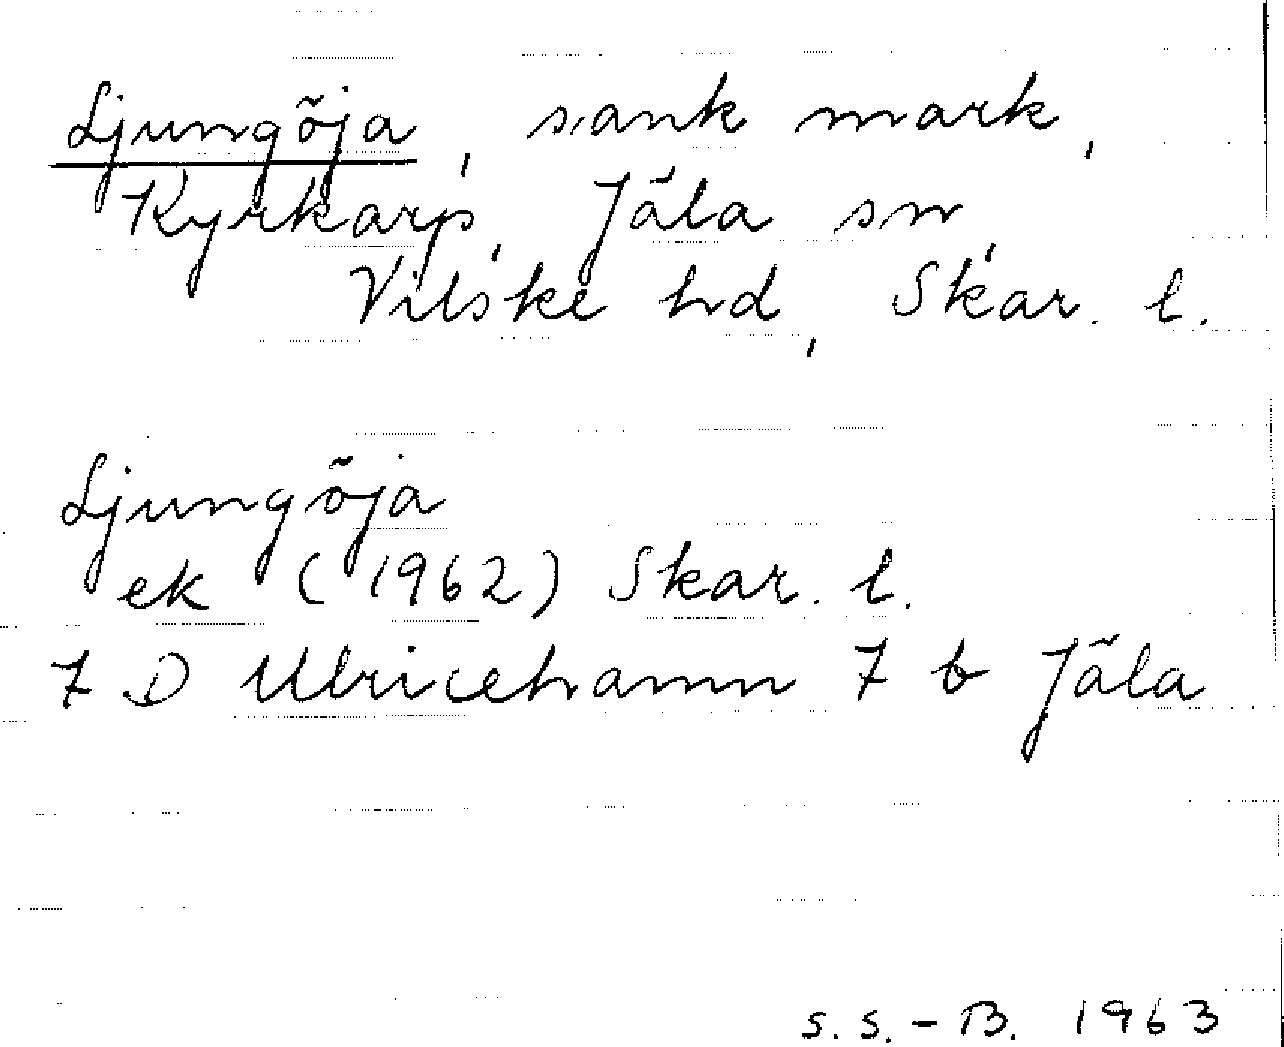 Ljungöja, sank mark,
Kyrkarp, Jäla sn,
Vilske hd, Skar. l.
Ljungöja
ek (1962) Skar. l.
7 D Ulricehamn 7 b Jäla
S. S. - B. 1963